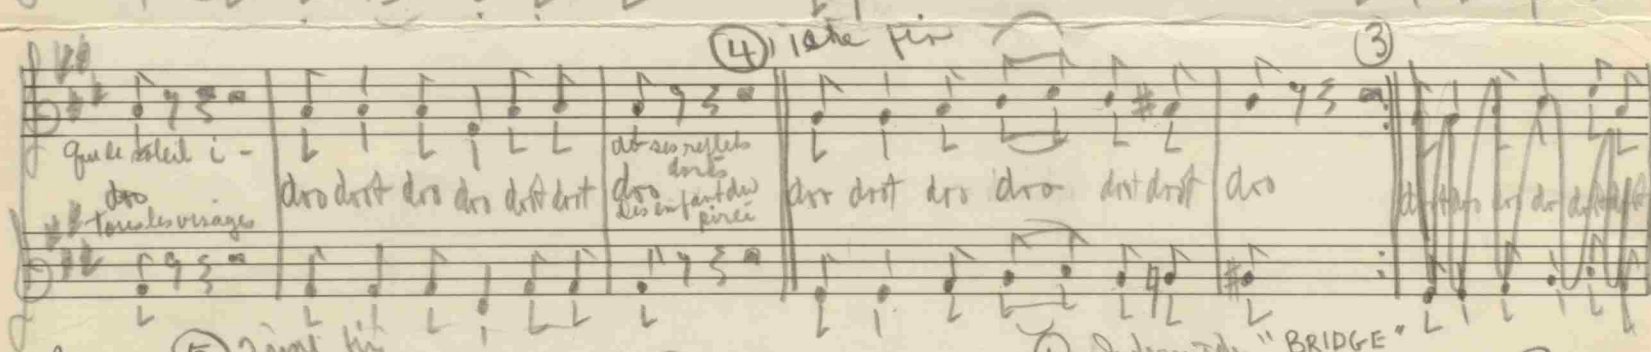 ④ 1ère fin ③
que le soleil i-
dro
tous les visages
dro drot dro dro drot drot
de ses reflets
dorés
dro
des enfants du
pirée
dro drot dro dro drot drot dro
⑤ 2ième fin
"BRIDGE"